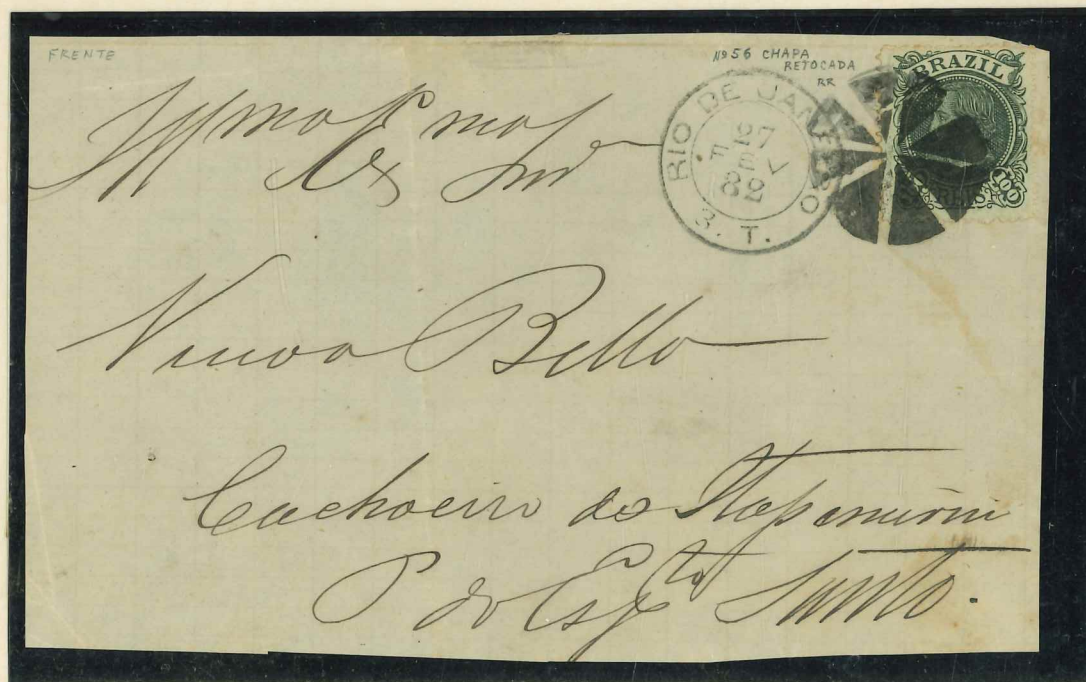 FRENTE
Nº 56 CHAPA
RETOCADA
RR
BRAZIL
100
RIO DE JANEIRO
27
FEV
82
3. T.
Illma Exma
Snrª
Viuva Bello
Cachoeiro do Itapemirim
P do Espto Santo.